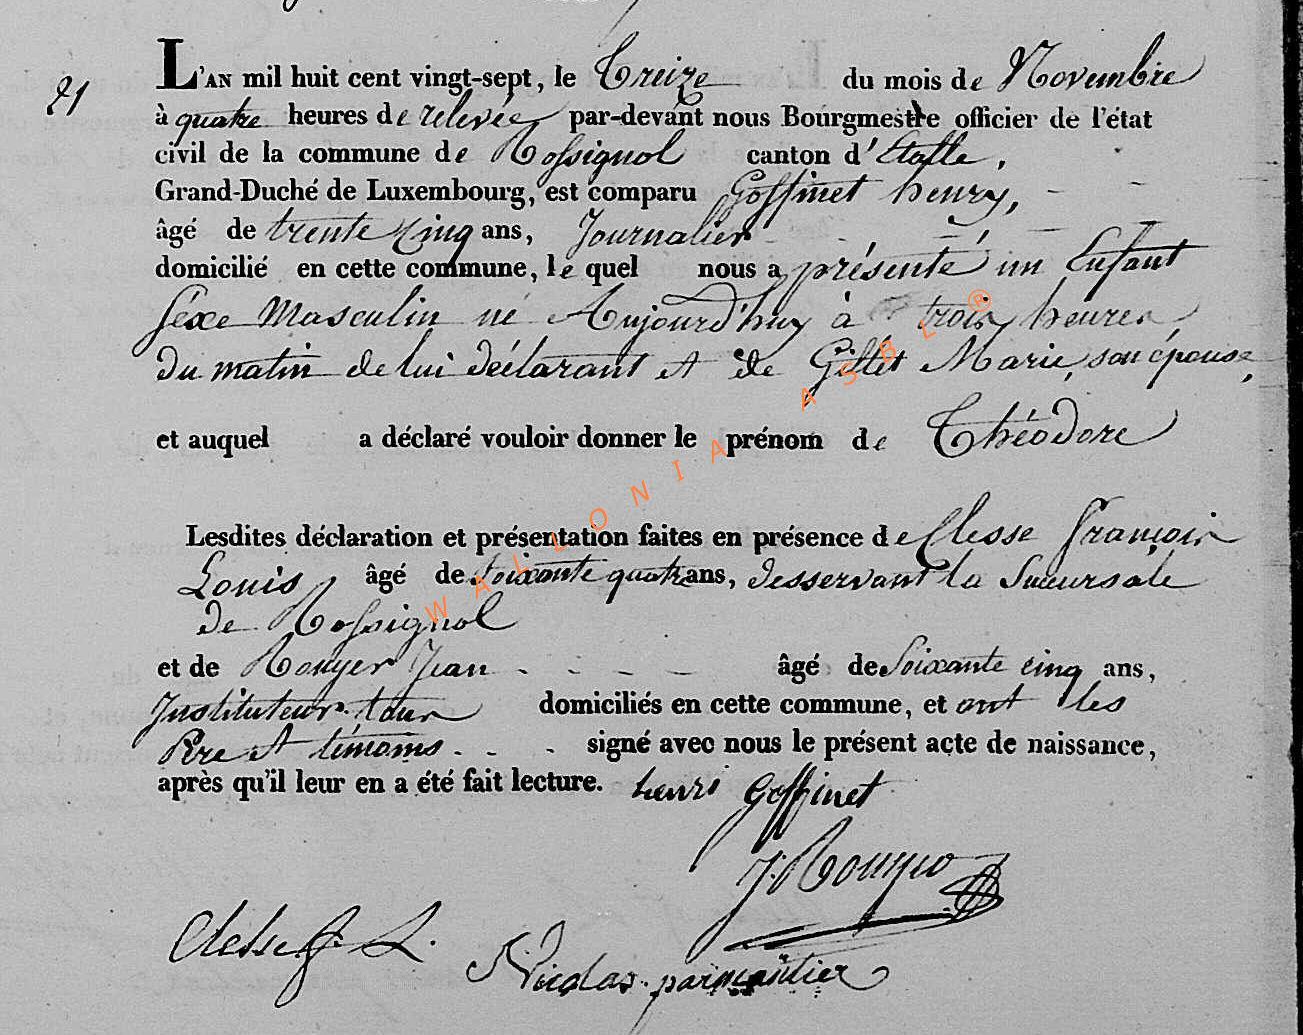 21
L'AN mil huit cent vingt-sept, le Treize du mois de Novembre
à quatre heures de relevée par-devant nous Bourgmestre officier de l'état
civil de la commune de Rossignol canton d'Etalle,
Grand-Duché de Luxembourg, est comparu Goffinet henry,
âgé de trente cinq ans, Journalier
domicilié en cette commune, le quel nous a présenté un Enfant
séxe Masculin né Aujourd'huy à trois heures
du matin de lui déclarant et de Gillet Marie, son épouse,
et auquel a déclaré vouloir donner le prénom de Théodore
Lesdites déclaration et présentation faites en présence de Clesse François
Louis, âgé de soixante quatre ans, desservant la Succursale
de Rossignol
et de Rouyer Jean âgé de Soixante cinq ans,
Instituteur. tous domiciliés en cette commune, et ont les
Père et témoins signé avec nous le présent acte de naissance,
après qu'il leur en a été fait lecture. henri Goffinet
J. Rouyer
Clesse f. L.
Nicolas parmentier
WALLONIA ASBL ®